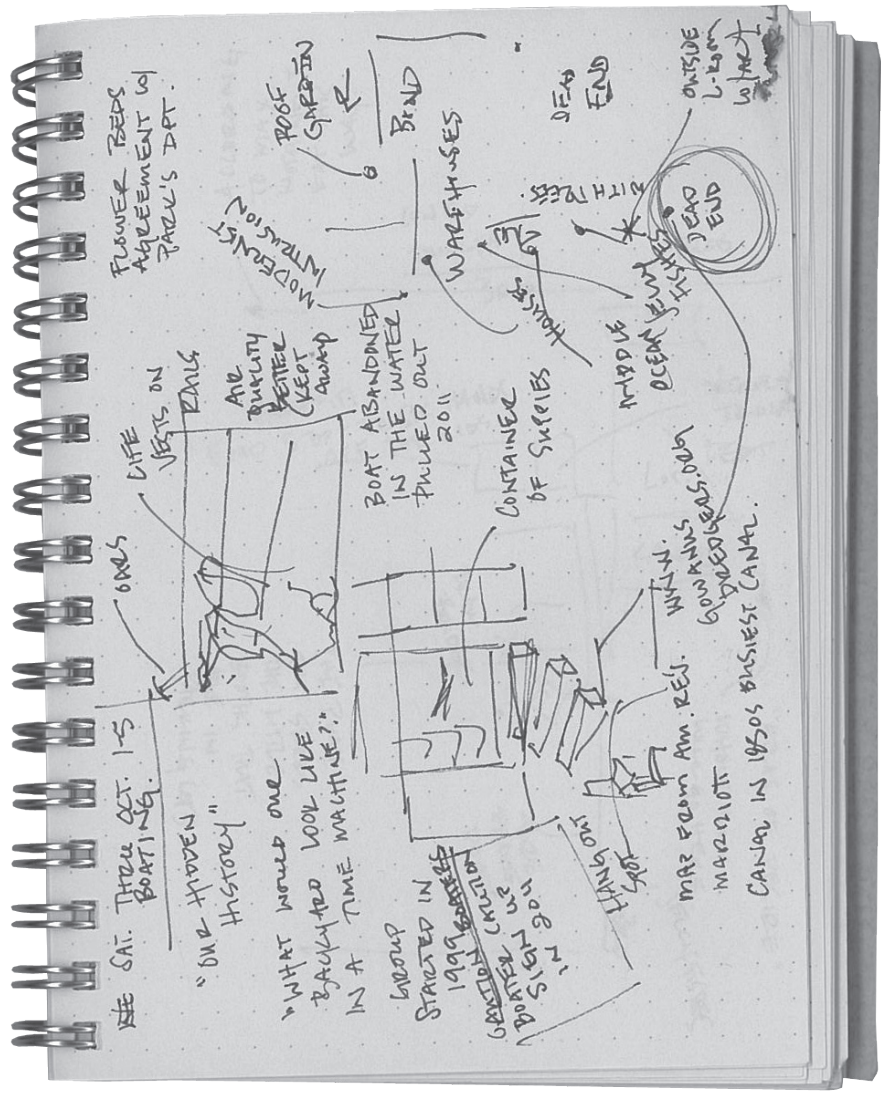 SAT. THRU OCT. 1-5
BOATING.
"OUR HIDDEN
HISTORY"
"WHAT WOULD OUR
BACKYARD LOOK LIKE
IN A TIME MACHINE?"
GROUP
STARTED IN
1999
CAUTION BOATERS
BOATER CAUTION
SIGN UP
IN 2011
HANG OUT
SPOT
MAP FROM AM. REV.
MARRIOTT
CANAL IN 1850S BUSIEST CANAL.
OARS
LIFE
VESTS ON
RAILS
AIR
QUALITY
BETTER
(KEPT
AWAY)
BOAT ABANDONED
IN THE WATER
PULLED OUT
2011
CONTAINER
OF SUPPLIES
WWW.
GOWANUS
DREDGERS.ORG
FLOWER BEDS
AGREEMENT W/
PARK'S DPT.
MODERNIST
INTRUSION
ROOF
GARDEN
BOND
WAREHOUSES
HOUSES
MIDDLE
OCEAN
DEAD
END
DEAD
END
OUTSIDE
L-ROOM
W/ART